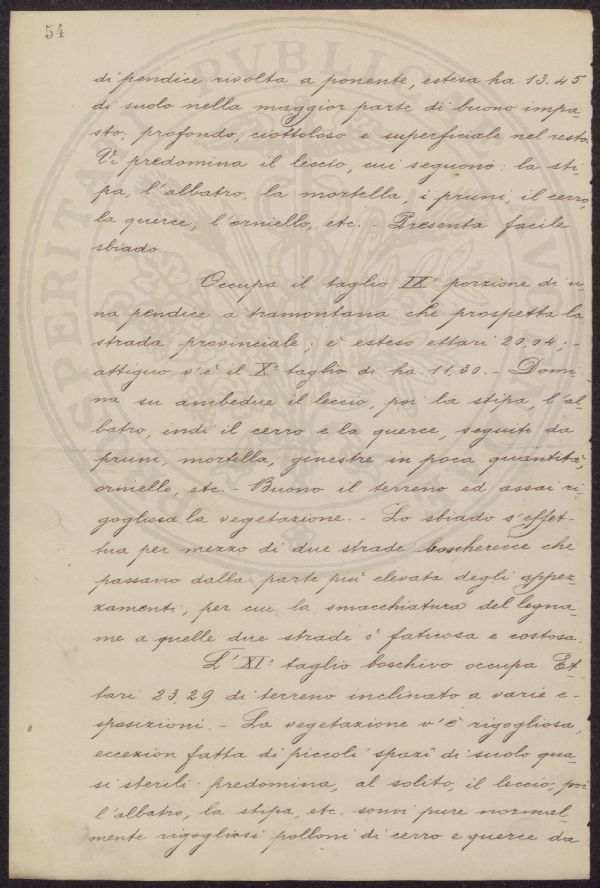 54
di pendice rivolta a ponente, estesa ha 13.45
di suolo nella maggior parte di buono impa-
sto, profondo, ciottoloso e superficiale nel resto.
Vi predomina il leccio, cui seguono: la sti-
pa, l'albatro, la mortella, i pruni, il cerro,
la querce, l'orniello, etc. - Presenta facile
sbiado.
Occupa il taglio IX° porzione di u-
na pendice a tramontana che prospetta la
strada provinciale; è esteso ettari 20,04; -
attiguo v'è il X° taglio di ha 11.30. - Domi-
na su ambedue il leccio, poi la stipa, l'al-
batro, indi il cerro e la querce, seguiti da
pruni, mortella, ginestre in poca quantità,
orniello, etc. - Buono il terreno ed assai ri-
gogliosa la vegetazione. - Lo sbiado s'effet-
tua per mezzo di due strade boscherecce che
passano dalla parte più elevata degli appez-
zamenti, per cui la smacchiatura del legna-
me a quelle due strade è faticosa e costosa.
L'XI° taglio boschivo occupa Et-
tari 23,29 di terreno inclinato a varie e-
sposizioni. - La vegetazione v'è rigogliosa,
eccezion fatta di piccoli spazî di suolo qua-
si sterili: predomina, al solito, il leccio, poi
l'albatro, la stipa, etc. sonvi pure normal-
mente rigogliosi polloni di cerro e querce da
PVBLICAE